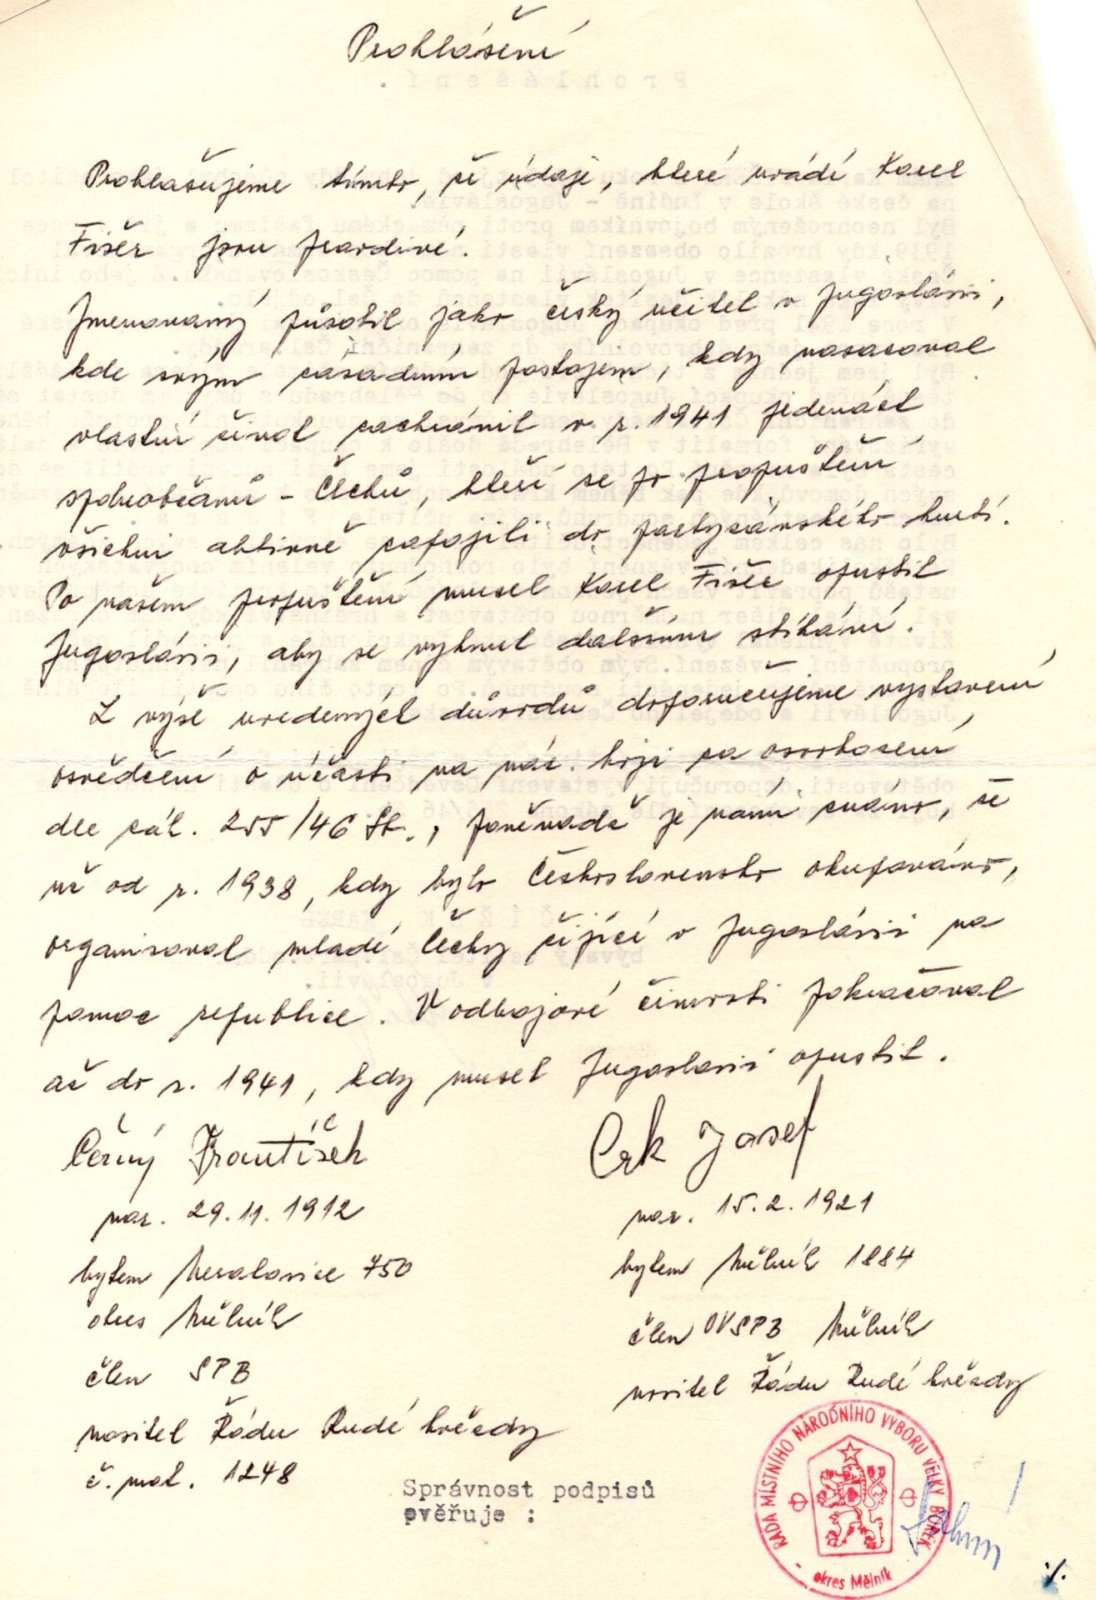 Prohlášení
Prohlašujeme tímto, že údaje, které uvádí Karel
Fišer jsou pravdivé.
Jmenovaný působil jako český učitel v Jugoslávii,
kde svým zásadním postojem, kdy nasazoval
vlastní život zachránil v r. 1941 jedenáct
spoluobčanů - Čechů, kteří se po propuštění
všichni aktivně zapojili do partyzánského hnutí.
Po našem propuštění musel Karel Fišer opustit
Jugoslávii, aby se vyhnul dalšímu stíhání.
Z výše uvedených důvodů doporučujeme vystavení
osvědčení o účasti na nár. boji za osvobození
dle zák. 255/46 Sb., poněvadž je námi známo, že
už od r. 1938, kdy bylo Československo okupováno,
organisoval mladé Čechy žijící v Jugoslávii na
pomoc republice. V odbojové činnosti pokračoval
až do r. 1941, kdy musel Jugoslavii opustit.
Černý František
nar. 29.11.1912
bytem Neratovice 750
okres Mělník
člen SPB
nositel Řádu Rudé hvězdy
č. mat. 1248
Crk Josef
nar. 15.2.1921
bytem Mělník 1884
člen OVSPB Mělník
nositel Řádu Rudé hvězdy
Správnost podpisů
ověřuje :
RADA MÍSTNÍHO NÁRODNÍHO VÝBORU VELKÝ BOREK
- okres Mělník
·/.